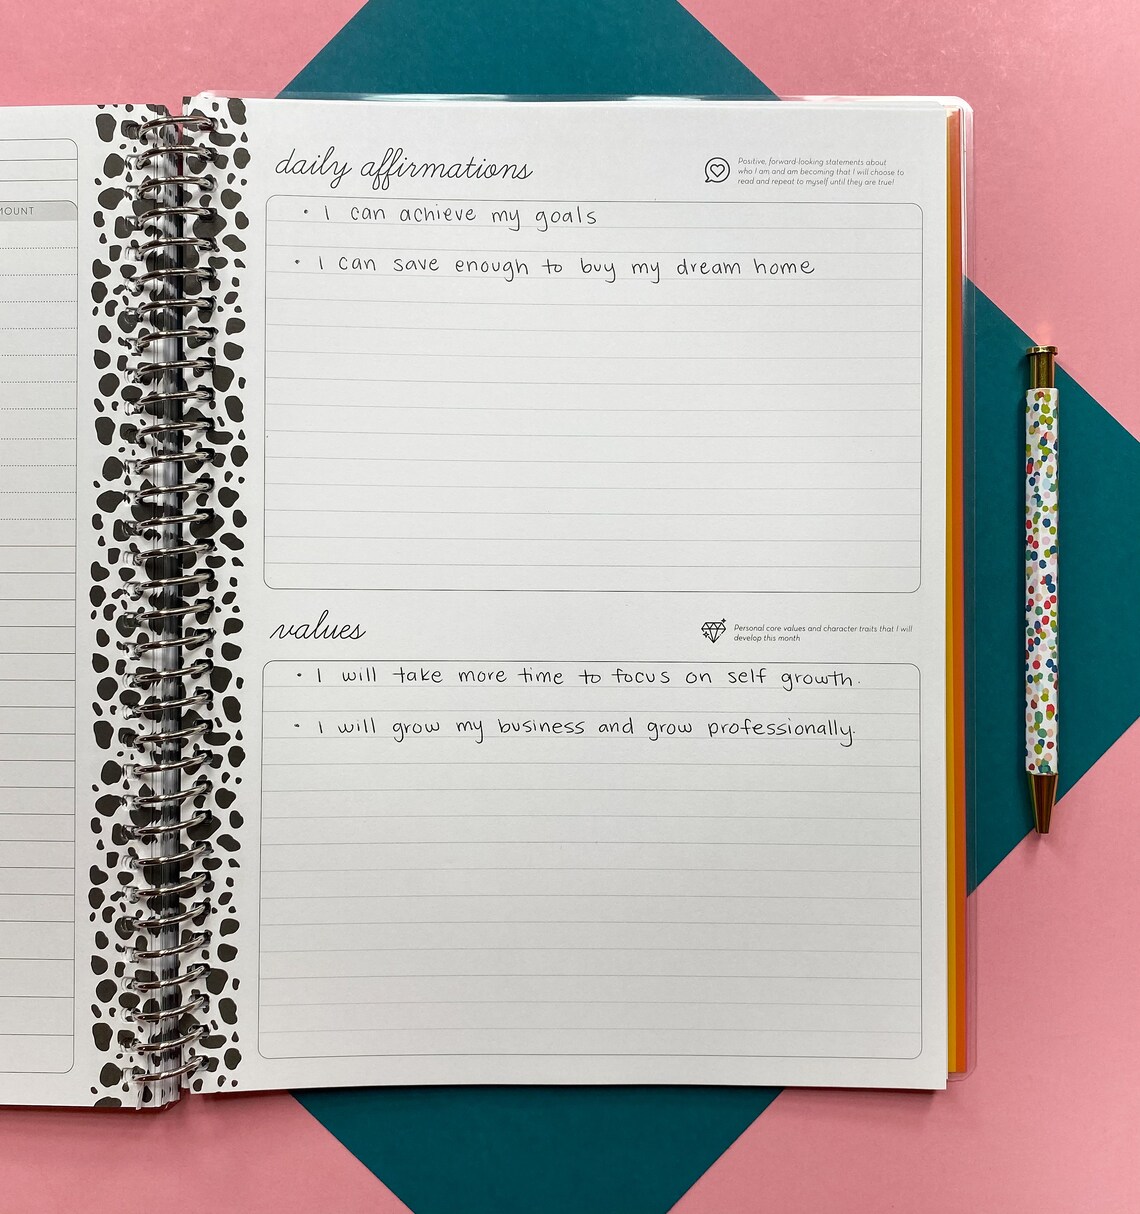 MOUNT
daily affirmations
Positive, forward-looking statements about
who I am and am becoming that I will choose to
read and repeat to myself until they are true!
• I can achieve my goals
• I can save enough to buy my dream home
values
Personal core values and character traits that I will
develop this month
• I will take more time to focus on self growth.
• I will grow my business and grow professionally.